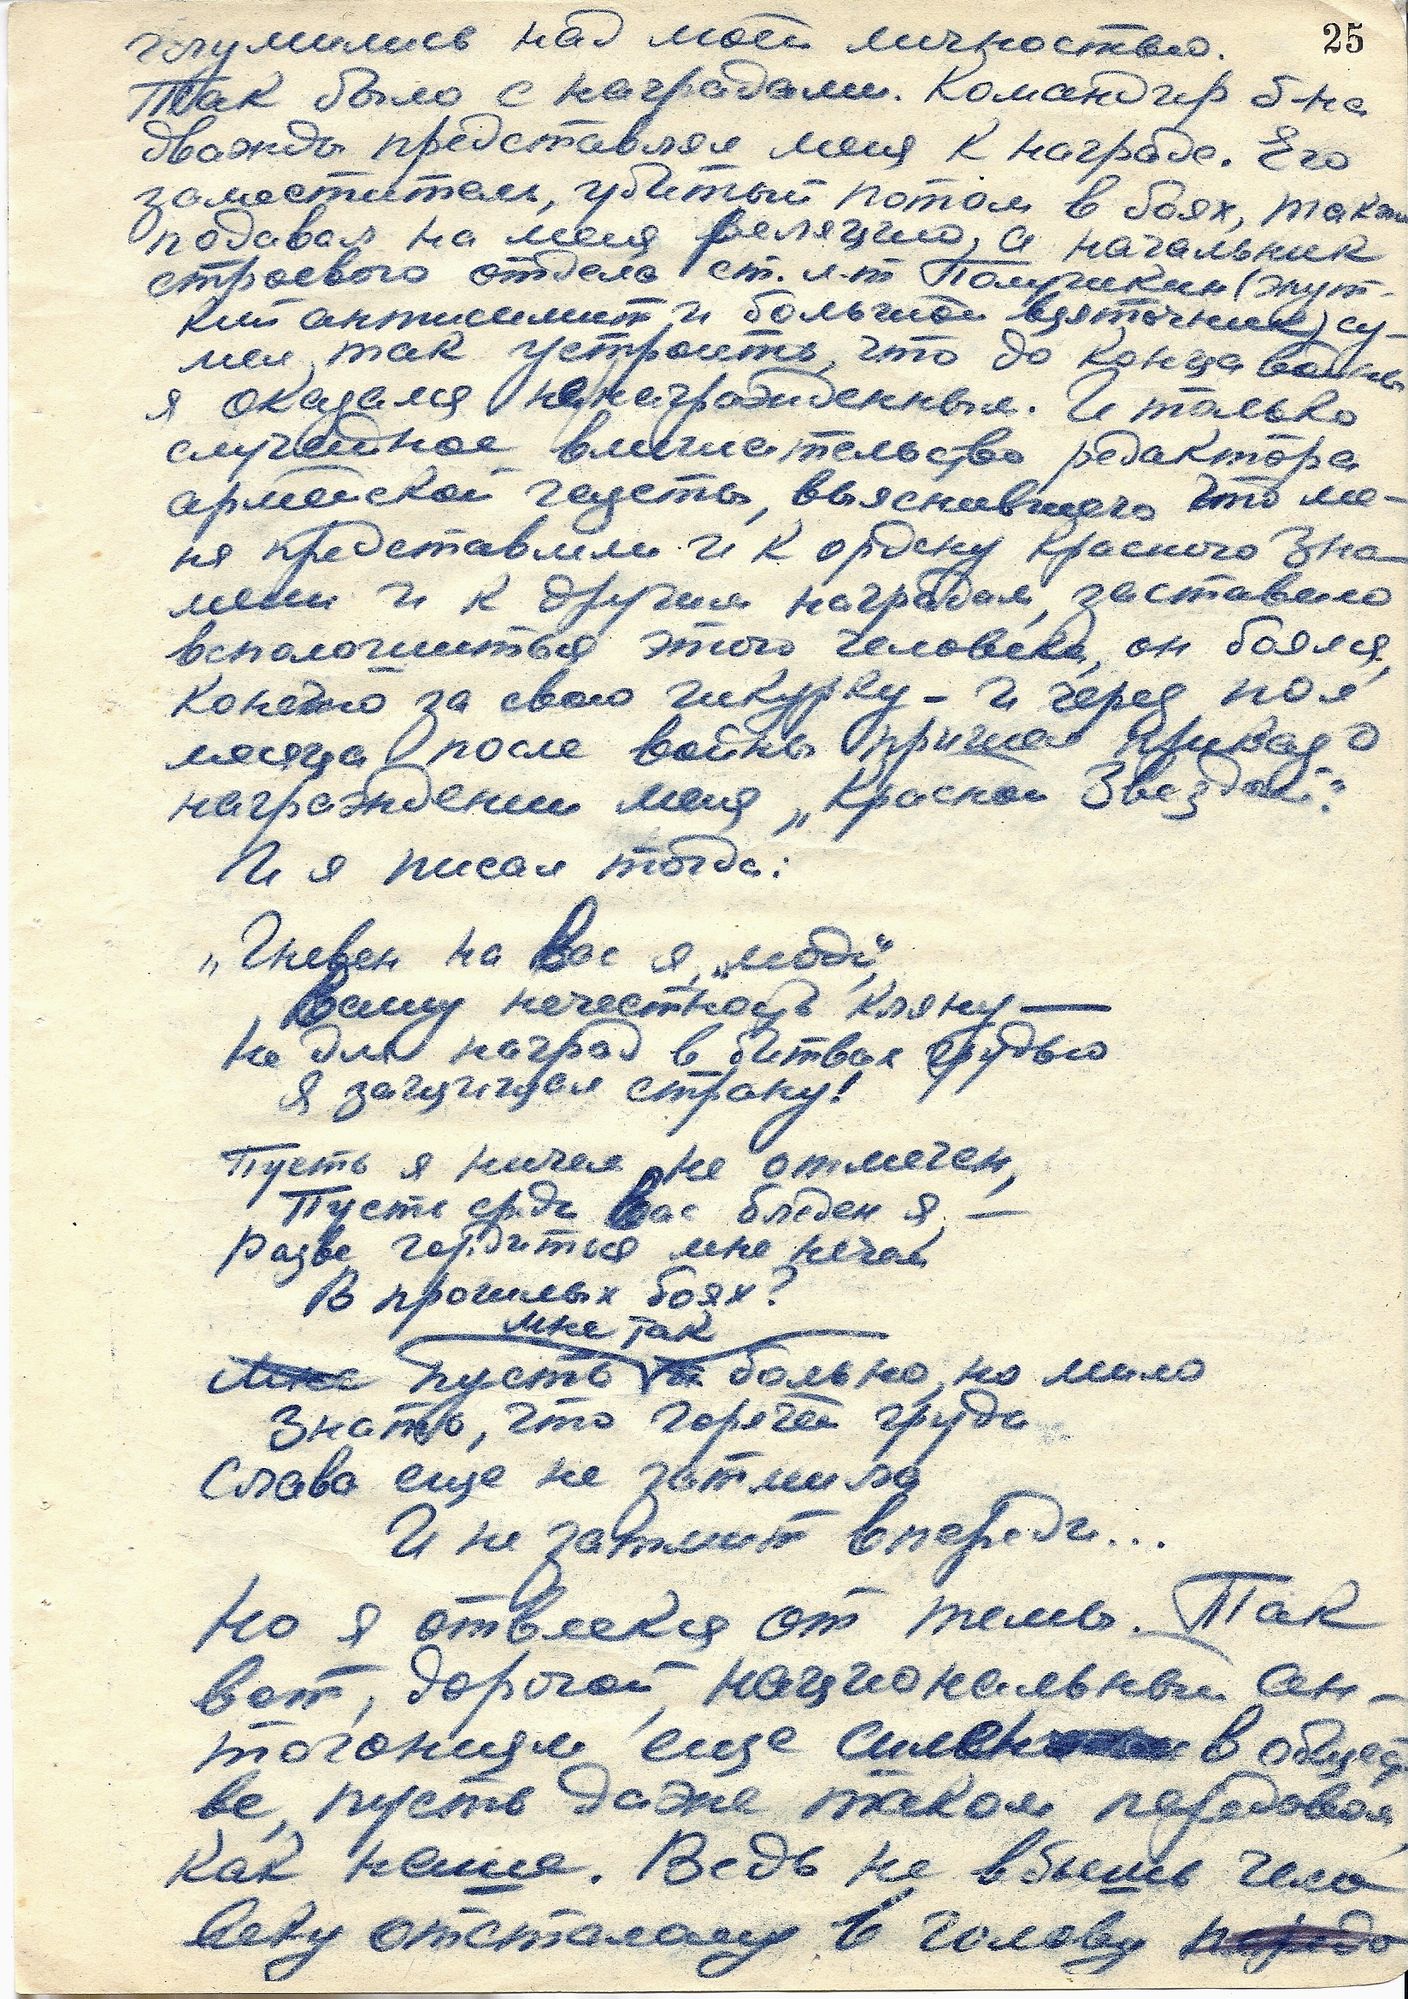 25
глумились над моей личностью.
Так было с наградами. Командир б-на
дважды представлял меня к награде. Его
заместитель, убитый потом в боях, также
подавал на меня реляцию, а начальник
строевого отдела ст. л-т Полушкин (жут-
кий антисемит и большой взяточник) су-
мел так устроить, что до конца войны
я оказался ненагражденным. И только
случайное вмешательство редактора
армейской газеты, выяснившего что ме-
ня представляли и к ордену Красного Зна-
мени и к другим наградам, заставило
всполошиться этого человека, он боялся,
конечно за свою шкурку – и через пол
месяца после войны пришел приказ о
награждении меня „Красной Звездой".
И я писал тогда:
„Гневен на Вас я, „люди",
Вашу нечестность кляну —
Не для наград в битвах грудью
Я защищал страну!
Пусть я ничем не отмечен,
Пусть средь Вас бледен я, —
Разве гордиться мне нечем
В прошлых боях?
мне так
Мне пусть и больно, но мило
Знать, что горячей груди
Слава еще не затмила
И не затмит впереди...
Но я отвлекся от темы. Так
вот, дорогой, национальный ан-
тогонизм еще силен в общест
ве, пусть даже таком передовом,
как наше. Ведь не вбьешь чело
веку отсталому в голову передо